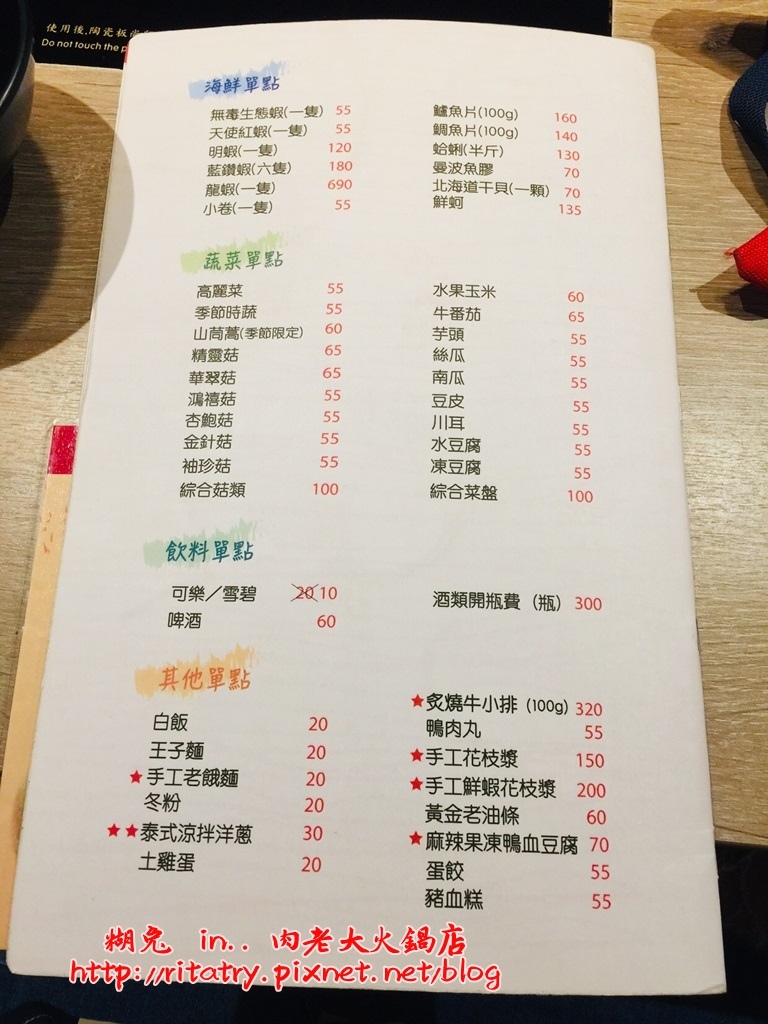 使用後,陶瓷板
Do not touch the p
海鮮單點
無毒生態蝦(一隻) 55
天使紅蝦(一隻) 55
明蝦(一隻) 120
藍鑽蝦(六隻) 180
龍蝦(一隻) 690
小卷(一隻) 55
鱸魚片(100g) 160
鯛魚片(100g) 140
蛤蜊(半斤) 130
曼波魚膠 70
北海道干貝(一顆) 70
鮮蚵 135
蔬菜單點
高麗菜 55
季節時蔬 55
山茼蒿(季節限定) 60
精靈菇 65
華翠菇 65
鴻禧菇 55
杏鮑菇 55
金針菇 55
袖珍菇 55
綜合菇類 100
水果玉米 60
牛番茄 65
芋頭 55
絲瓜 55
南瓜 55
豆皮 55
川耳 55
水豆腐 55
凍豆腐 55
綜合菜盤 100
飲料單點
可樂／雪碧 20 10
啤酒 60
酒類開瓶費（瓶） 300
其他單點
白飯 20
王子麵 20
★手工老餓麵 20
冬粉 20
★★泰式涼拌洋蔥 30
土雞蛋 20
★炙燒牛小排 (100g) 320
鴨肉丸 55
★手工花枝漿 150
★手工鮮蝦花枝漿 200
黃金老油條 60
★麻辣果凍鴨血豆腐 70
蛋餃 55
豬血糕 55
糊兔 in.. 肉老大火鍋店
http://ritatry.pixnet.net/blog